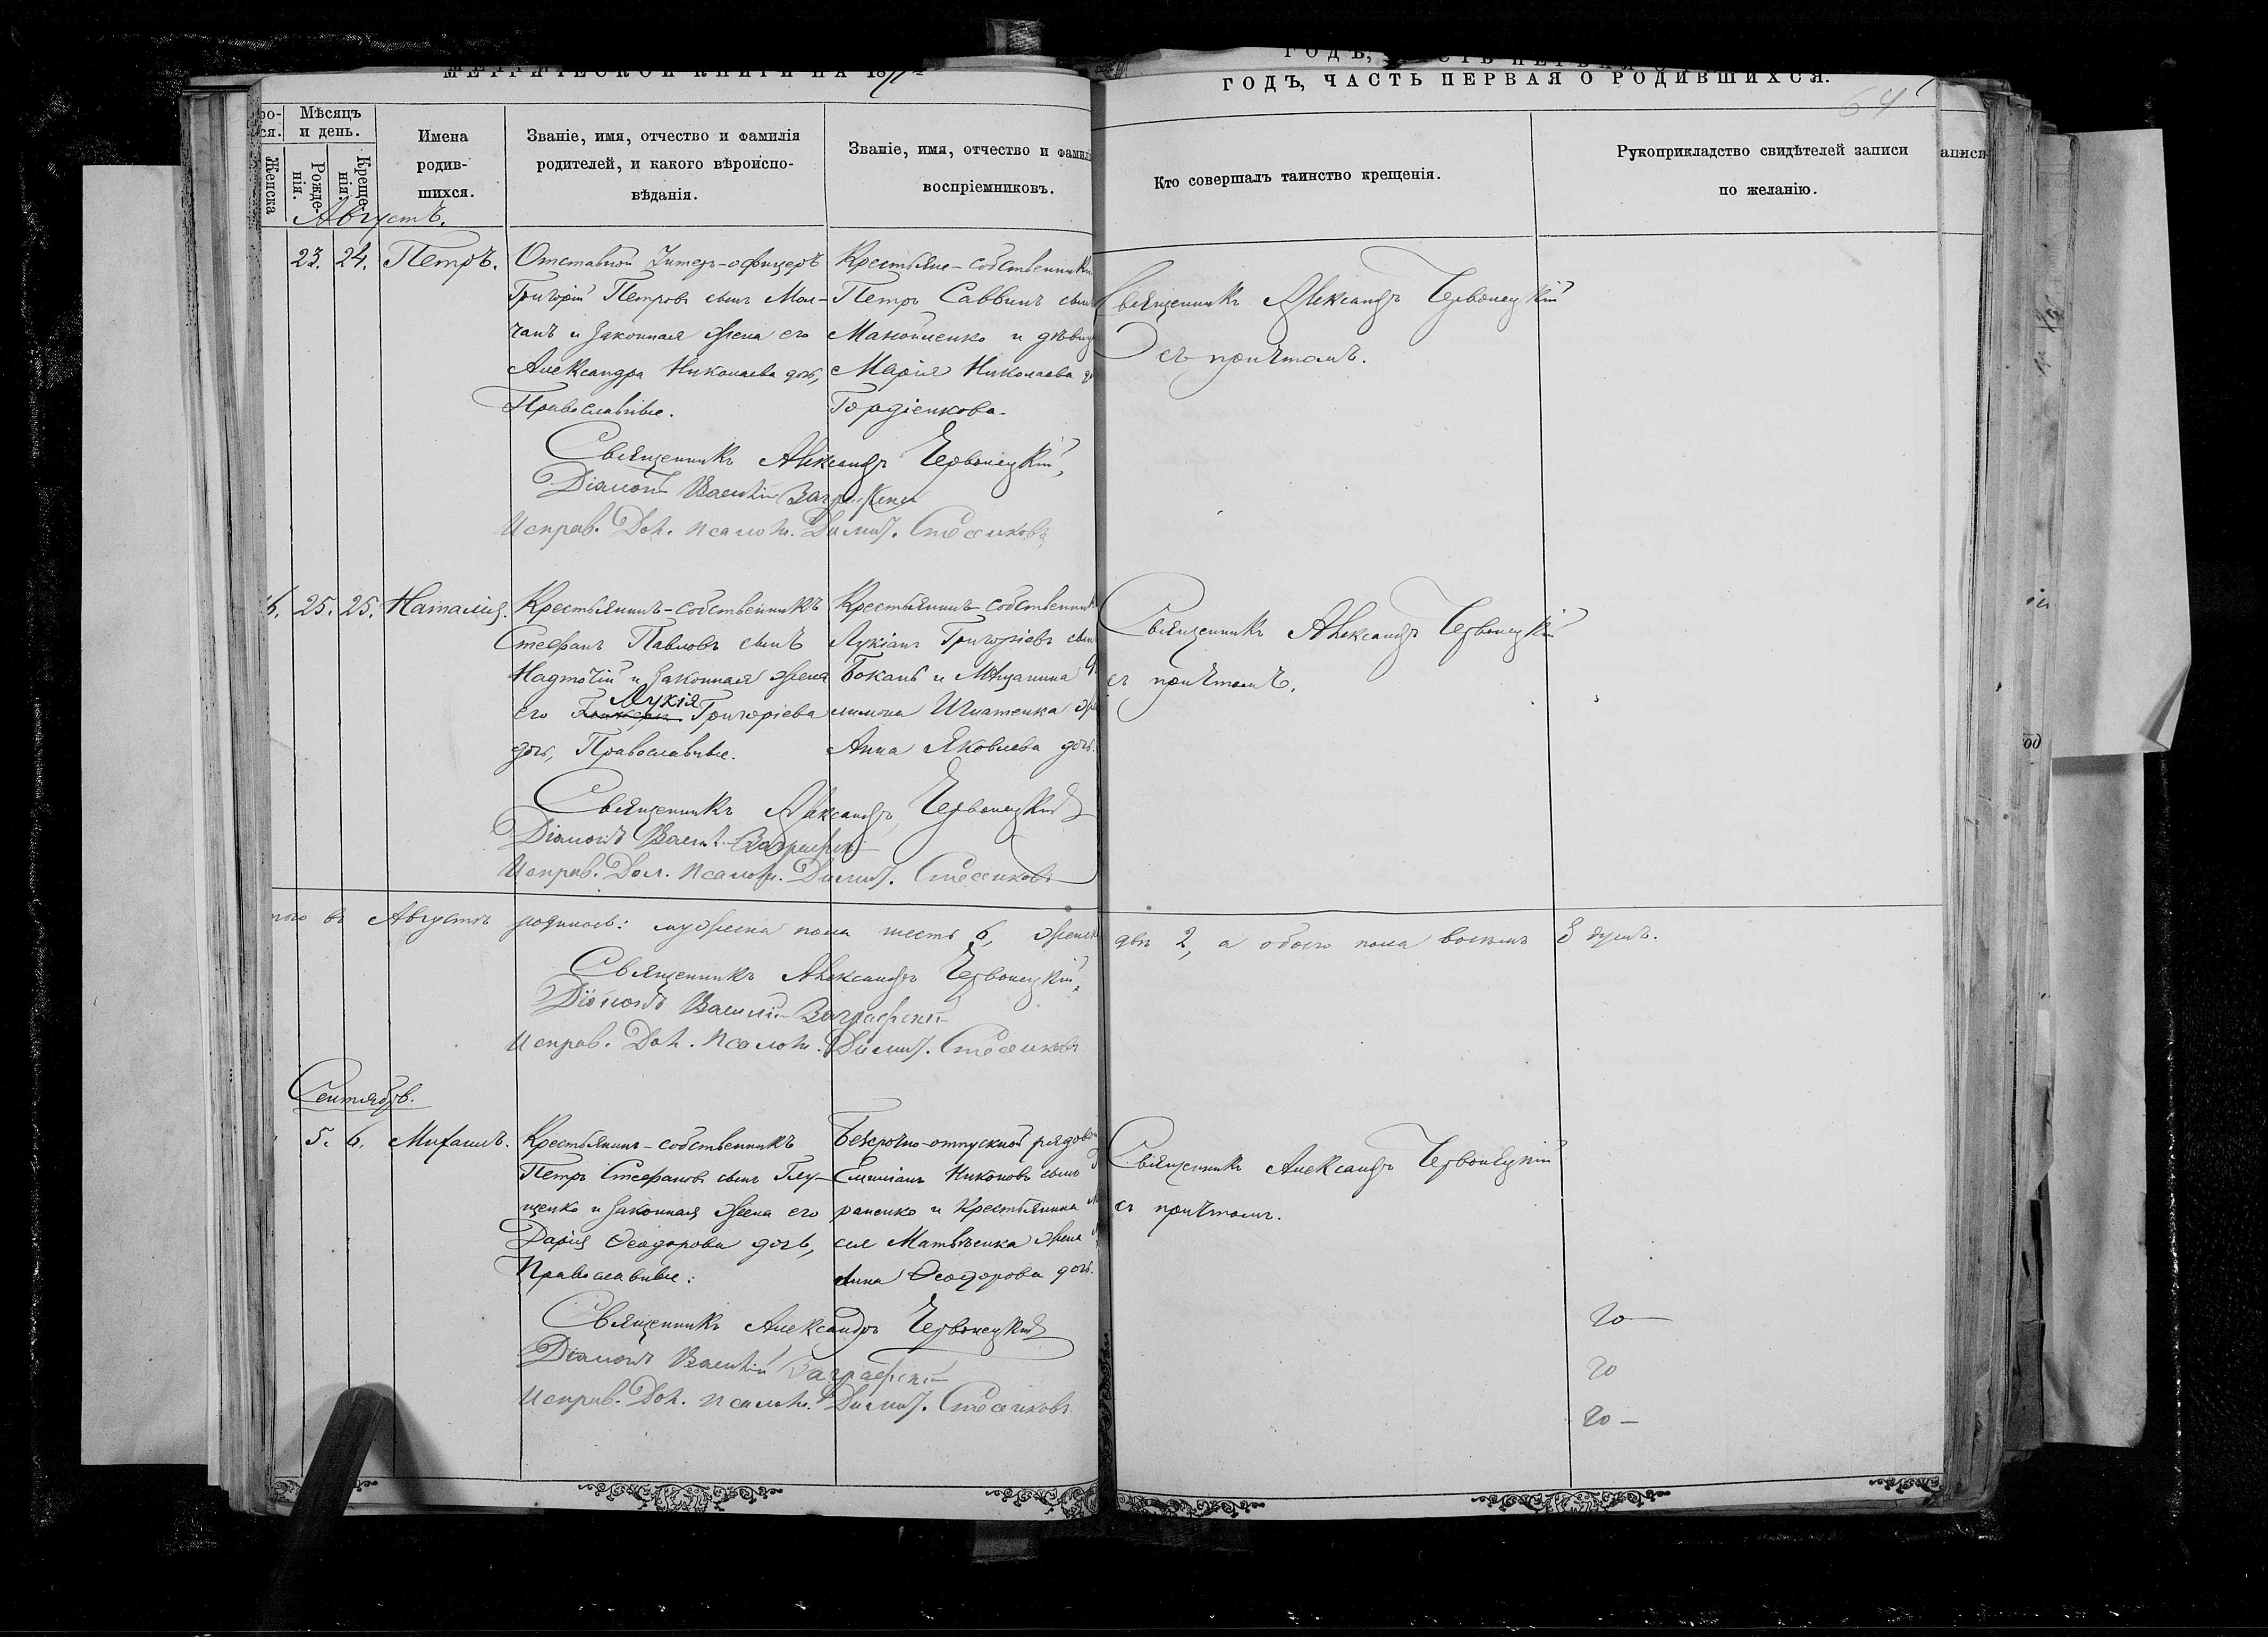 МЕТРИЧЕСКОЙ КНИГИ НА 18
ГОДЪ, ЧАСТЬ ПЕРВАЯ О РОДИВШИХСЯ.
64
Мѣсяцъ и день.
Женска
Рожде-нія.
Креще-нія.
Имена родив-шихся.
Званіе, имя, отчество и фамилія родителей, и какого вѣроиспо-вѣданія.
Званіе, имя, отчество и фамилі воспріемниковъ.
Кто совершалъ таинство крещенія.
Рукоприкладство свидѣтелей записи по желанію.
Августъ.
23. 24. Петръ.
Отставной Унтер-офицеръ
Григорій Петровъ сынъ Мол-
чанъ и законная жена его
Александра Николаева дочь,
Православные.
Крестьяне-собственники
Петръ Саввинъ сынъ
Манойленко и дѣвица
Марія Николаева
Гордіенкова.
Священникъ Александръ Червонецкій
съ причтомъ.
Священникъ Александръ Червонецкій,
Діаконъ Василій Заграфскій
Исправ. Дол. Псалом. Димит. Стесиковъ
25. 25. Наталія.
Крестьянинъ-собственникъ
Стефанъ Павловъ сынъ
Надточій и законная жена
его Лукія Григоріева
дочь, Православные.
Крестьянинъ-собственник
Лукіанъ Григоріевъ сын
Бокань и Мѣщанина
лимона Игнатенка
Анна Яковлева дочь.
Священникъ Александръ Червонецкій
съ причтомъ.
Священникъ Александръ Червонецкій
Діаконъ Васил. Заграфскій
Исправ. Дол. Псалом. Димит. Стесиковъ
въ Августѣ родилось: мужеска пола шесть 6, женск двѣ 2, а обоего пола восемь 8 душъ.
Священникъ Александръ Червонецкій,
Діаконъ Василій Заграфскій
Исправ. Дол. Псалом. Димит. Стесиковъ
Сентябрь.
5. 6. Михаилъ.
Крестьянинъ-собственникъ
Петръ Стефановъ сынъ Глу-
щенко и законная жена его
Дарія Ѳеодорова дочь,
Православные:
Безсрочно-отпускной рядовой
Емиліанъ Никоновъ сынъ
раненко и Крестьянина
сея Матвѣенка жена
Анна Ѳеодорова дочь.
Священникъ Александръ Червонецкій
съ причтомъ.
Священникъ Александръ Червонецкій
Діаконъ Василій Заграфскій
Исправ. Дол. Псалом. Димит. Стесиковъ
20 —
20
20 —